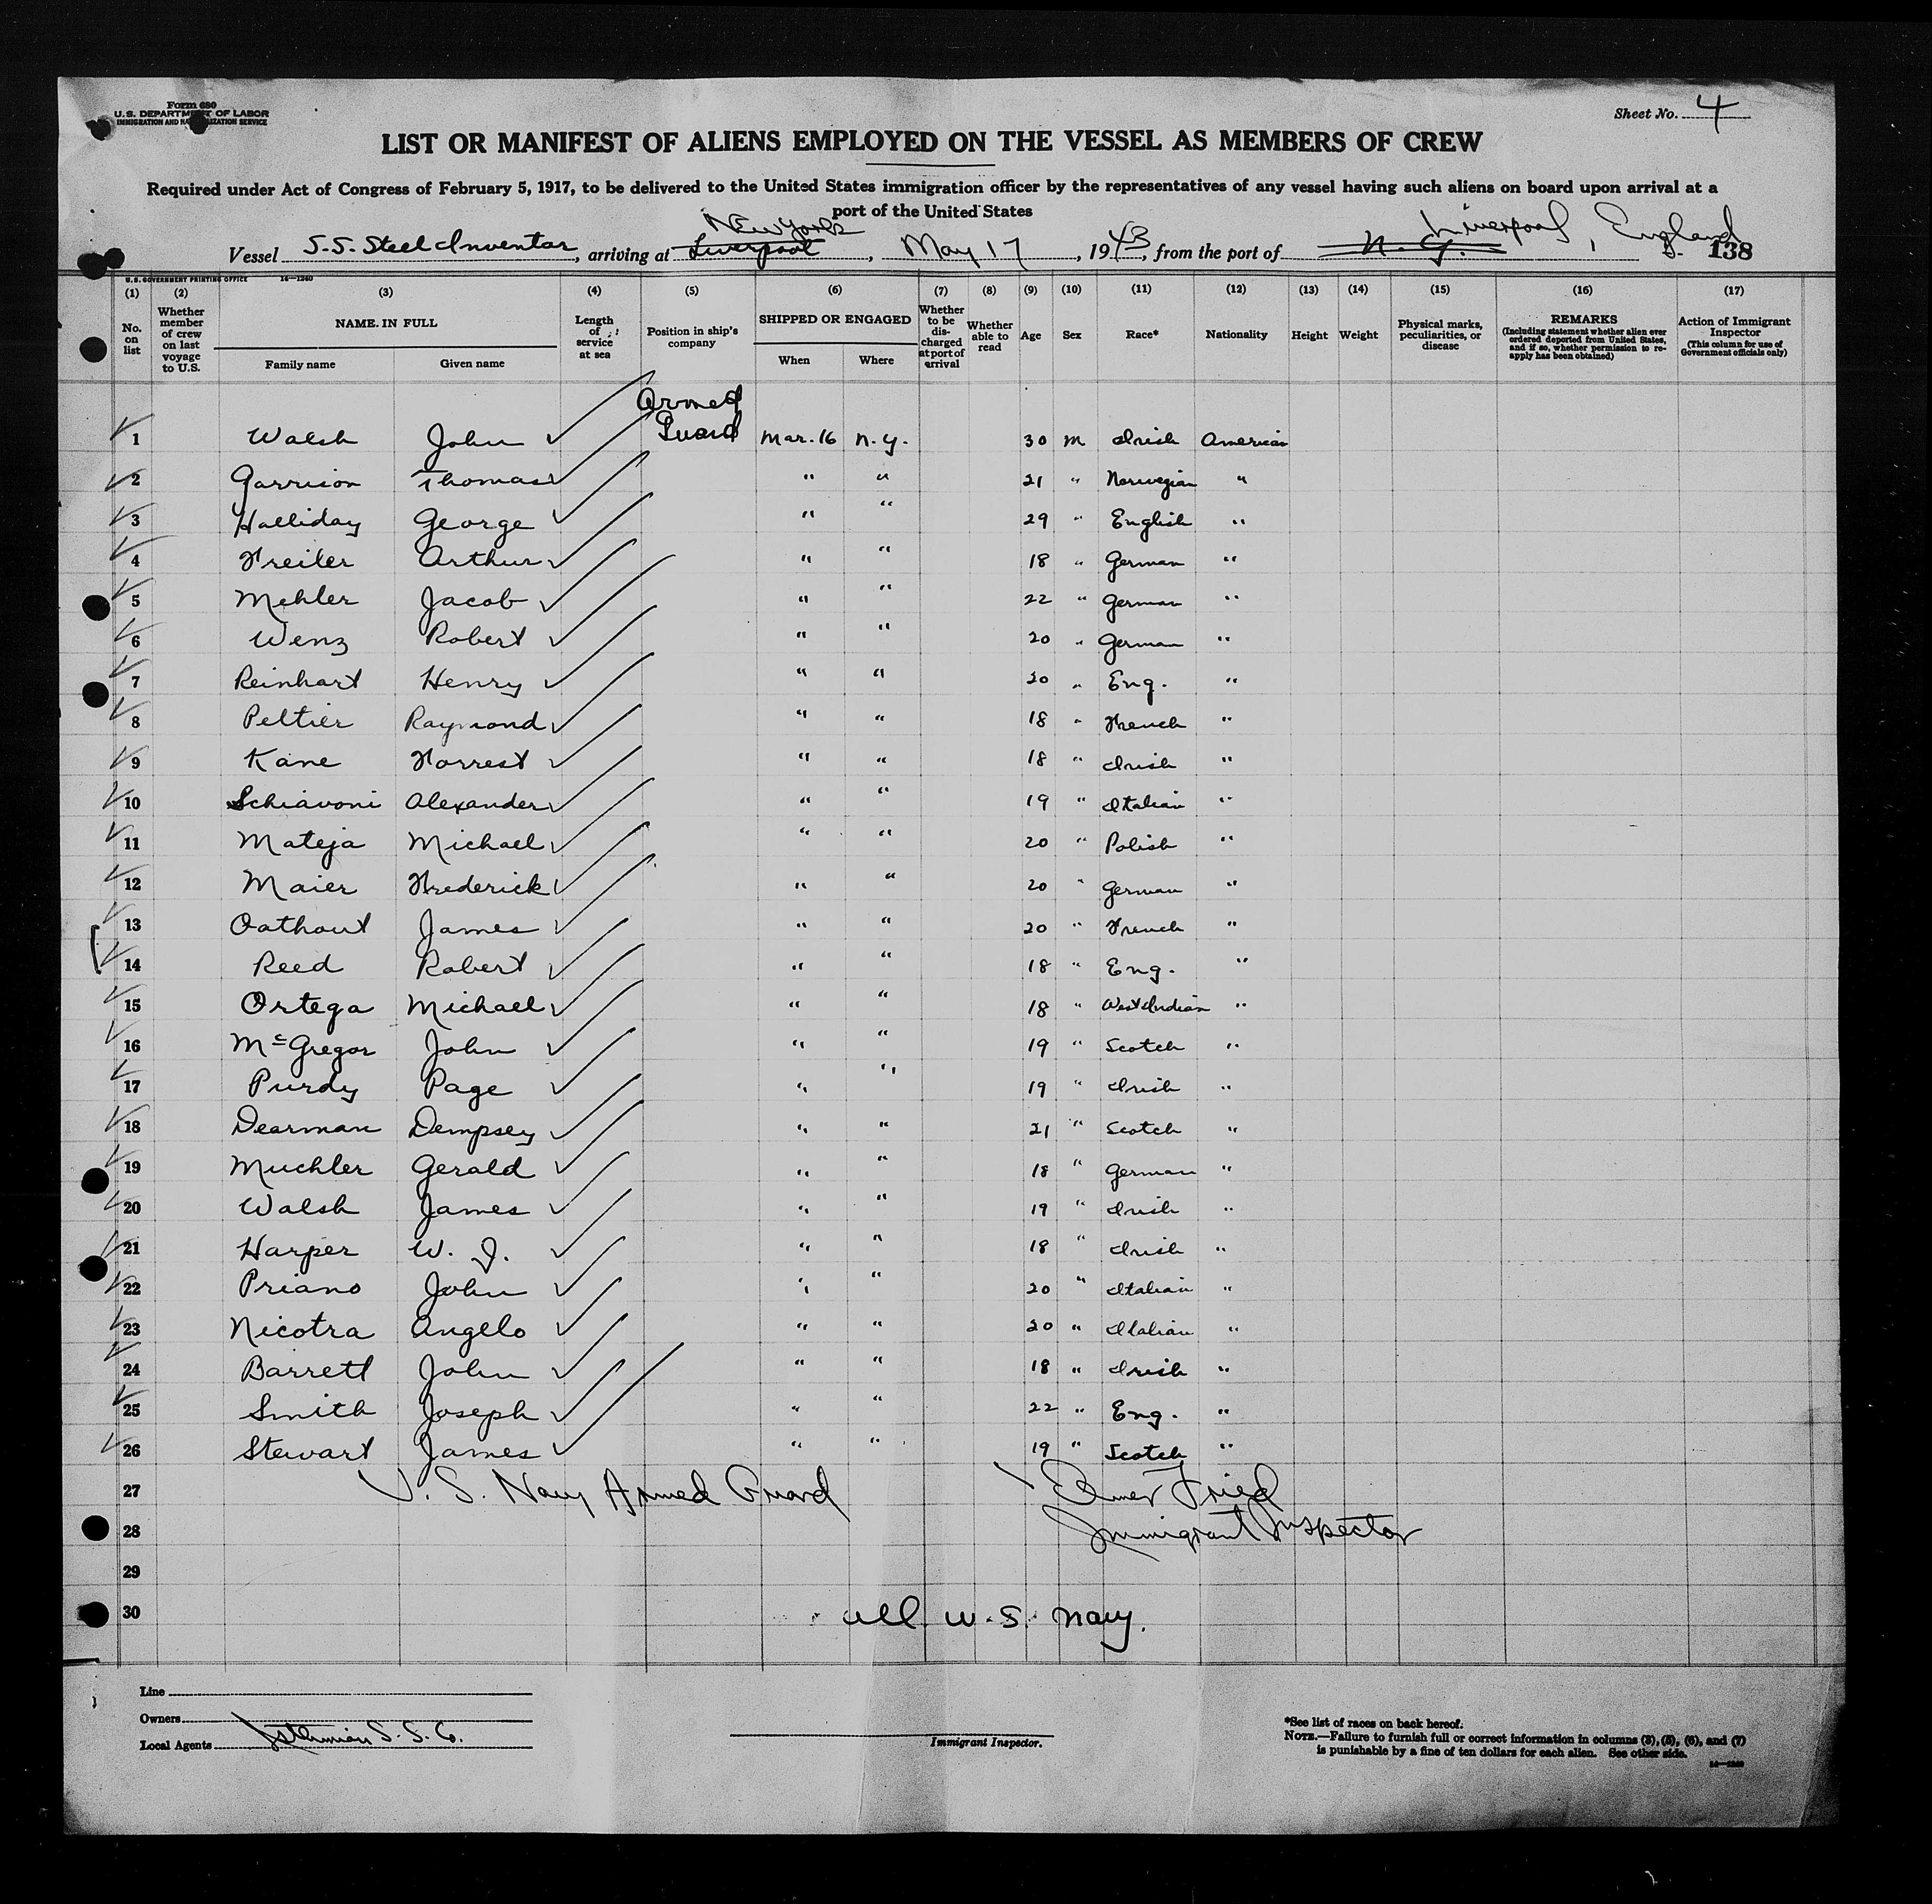 Form 680
U.S. DEPARTMENT OF LABOR
IMMIGRATION AND NATURALIZATION SERVICE
Sheet No. 4
LIST OR MANIFEST OF ALIENS EMPLOYED ON THE VESSEL AS MEMBERS OF CREW
Required under Act of Congress of February 5, 1917, to be delivered to the United States immigration officer by the representatives of any vessel having such aliens on board upon arrival at a
port of the United States
New York Liverpool, England
Vessel S.S. Steel Inventor, arriving at Liverpool, May 17, 1943, from the port of N.Y. 138
U.S. GOVERNMENT PRINTING OFFICE 14-1240
(1) (2) (3) (4) (5) (6) (7) (8) (9) (10) (11) (12) (13) (14) (15) (16) (17)
No. on list
Whether member of crew on last voyage to U.S.
NAME IN FULL
Family name Given name
Length of service at sea
Position in ship's company
SHIPPED OR ENGAGED
When Where
Whether to be discharged at port of arrival
Whether able to read
Age
Sex
Race*
Nationality
Height
Weight
Physical marks, peculiarities, or disease
REMARKS
(Including statement whether alien ever ordered deported from United States, and if so, whether permission to re-apply has been obtained)
Action of Immigrant Inspector
(This column for use of Government officials only)
Armed
1 Walsh John Guard Mar. 16 N.Y. 30 M Irish American
2 Garrison Thomas " " 21 " Norwegian "
3 Halliday George " " 29 " English "
4 Freiler Arthur " " 18 " German "
5 Mehler Jacob " " 22 " German "
6 Wenz Robert " " 20 " German "
7 Reinhart Henry " " 20 " Eng. "
8 Peltier Raymond " " 18 " French "
9 Kane Forrest " " 18 " Irish "
10 Schiavoni Alexander " " 19 " Italian "
11 Mateja Michael " " 20 " Polish "
12 Maier Frederick " " 20 " German "
13 Oathout James " " 20 " French "
14 Reed Robert " " 18 " Eng. "
15 Ortega Michael " " 18 " West Indian "
16 McGregor John " " 19 " Scotch "
17 Purdy Page " " 19 " Irish "
18 Dearman Dempsey " " 21 " Scotch "
19 Muchler Gerald " " 18 " German "
20 Walsh James " " 19 " Irish "
21 Harper W. J. " " 18 " Irish "
22 Priano John " " 20 " Italian "
23 Nicotra Angelo " " 20 " Italian "
24 Barrett John " " 18 " Irish "
25 Smith Joseph " " 22 " Eng. "
26 Stewart James " " 19 " Scotch "
27 U. S. Navy Armed Guard Elmer Fried
28 Immigrant Inspector
29
30 all U.S. Navy.
Line
Owners
Local Agents Isthmian S. S. Co.
Immigrant Inspector.
*See list of races on back hereof.
NOTE.—Failure to furnish full or correct information in columns (3), (5), (6), and (7)
is punishable by a fine of ten dollars for each alien. See other side.
14-1240